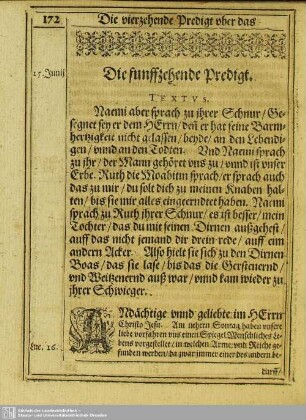 172
Die vierzehende Predigt vber das
15. Junij
Die funffzehende Predigt.
TEXTVS.
Naemi aber sprach zu jhrer Schnur / Ge-
segnet sey er dem HErrn / deñ er hat seine Barm-
hertzigkeit nicht gelassen / beyde / an den Lebendi-
gen / vnnd an den Todten. Vnd Naemi sprach
zu jhr / der Mann gehöret vns zu / vnnd ist vnser
Erbe. Ruth die Moabitin sprach / er sprach auch
das zu mir / du solt dich zu meinen Knaben hal-
ten / bis sie mir alles eingeerndtet haben. Naemi
sprach zu Ruth jhrer Schnur / es ist besser / mein
Tochter / das du mit seinen Dirnen außgehest /
auff das nicht jemand dir drein rede / auff eim
andern Acker. Also hielt sie sich zu den Dirnen
Boas / das sie lase / bis das die Gerstenernd /
vnd Weitzenernd auß war / vnnd kam wieder zu
jhrer Schwieger.
ANdächtige vnnd geliebte im HErrn
Christo Jesu. Am nehern Sontag haben vnsere
liebe vorfahren vns einen Spiegel Menschliches Le-
Luc. 16.
bens vorgestellet / in welchen Arme vnd Reiche ge-
funden werden / da zwar immer einer des andern be-
darff /